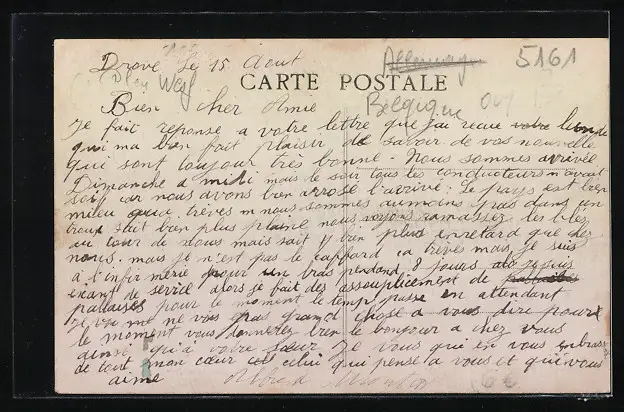 Drove le 15 Aout
Allemagne 5161
CARTE POSTALE
Belgique
Bien cher Amie
Je fait réponse a votre lettre que j'ai recue votre lundi
qui ma bien fait plaisir de savoir de vos nouvelle
qui sont toujour très bonne - Nous sommes arrivée
Dimanche a midi mais le soir tous les conducteurs n'avait
soif car nous avons bien arrosé l'arrivé: Le pays est bien
mieu qua trèves nous sommes aumoins pas dans un
trou s'ait bien plus plaine nous voyons ramasser les blés
au tour de nous mais sait y bien plus enretard que chez
nous. mais se n'est pas le caffard a trèves mais je suis
a l'infirmérie pour un bras pendant 8 jours
exant de service alors je fait des assouplicement de
pour le moment le temps passe en attendant
je ne vois pas grand chose a vous dire pour
le moment vous donnerez bien le bonjour a chez vous
ainsi qu'a votre sœur Je vous qui en vous embrass
de tout mon cœur celui qui pense a vous et qui vous
aime